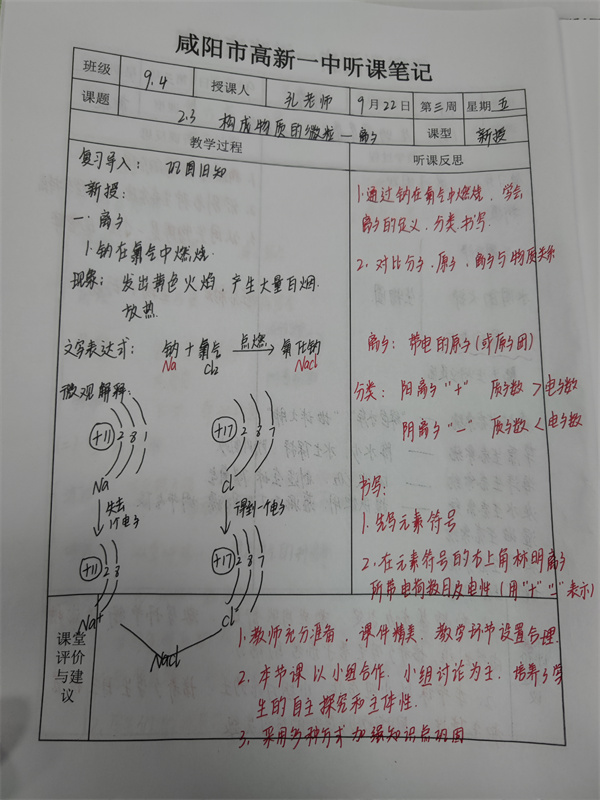 咸阳市高新一中听课笔记
班级 9.4 授课人 孔老师 9月22日 第三周 星期 五
课题 2.3 构成物质的微粒—离子 课型 新授
教学过程
复习导入： 巩固旧知
新授：
一. 离子
1.钠在氯气中燃烧.
现象： 发出黄色火焰，产生大量白烟.
放热.
文字表达式： 钠 + 氯气 点燃→ 氯化钠
Na Cl₂ NaCl
微观解释：
+11 2 8 1 +17 2 8 7
Na Cl
失去1个电子 得到一个电子
+11 2 8 +17 2 8 7
Na⁺ Cl⁻
NaCl
听课反思
1.通过钠在氯气中燃烧，学会
离子的定义、分类、书写.
2. 对比分子、原子、离子与物质关系
离子： 带电的原子(或原子团)
分类： 阳离子 "+" 质子数 > 电子数
阴离子 "—" 质子数 < 电子数
书写：
1. 先写元素符号
2. 在元素符号的右上角标明离子
所带电荷数及电性 (用"+" "-"表示)
课堂
评价
与建
议
1. 教师充分准备，课件精美，教学环节设置合理.
2. 本节课以小组合作、小组讨论为主，培养了学
生的自主探究和主体性.
3. 采用多种方式加强知识点巩固